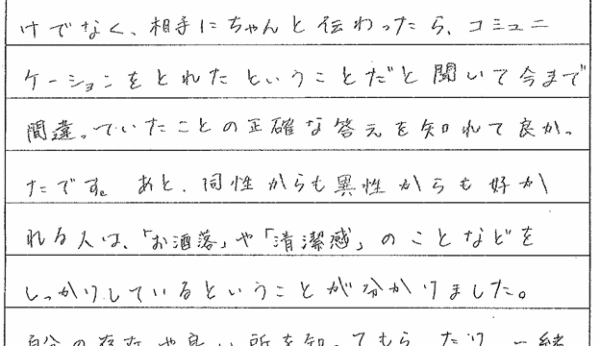 けでなく、相手にちゃんと伝わったら、コミュニ
ケーションをとれたということだと聞いて今まで
間違っていたことの正確な答えを知れて良かっ
たです。あと、同性からも異性からも好か
れる人は、「お洒落」や「清潔感」のことなどを
しっかりしているということが分かりました。
自分の存在や良い所を知ってもらったり、一緒